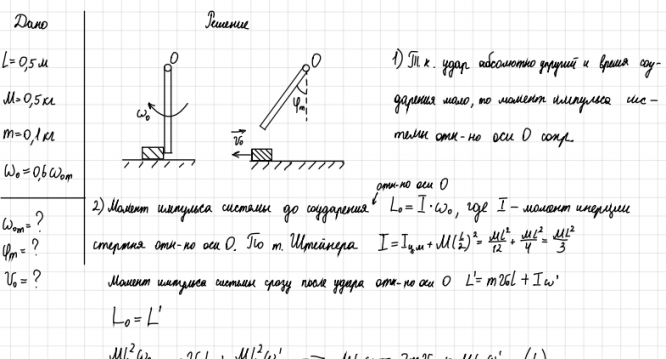 Дано
Решение
L=0,5 м
M=0,5 кг
m=0,1 кг
ω₀=0,6ω₀m
ω₀m=?
φm=?
V₀=?
O
ω₀
O
φm
v₀
1) Т.к. удар абсолютно упругий и время соу-
дарения мало, то момент импульса сис-
темы отн-но оси O сохр.
отн-но оси O
2) Момент импульса системы до соударения L₀=I·ω₀, где I – момент инерции
стержня отн-но оси O. По т. Штейнера I=Iцм+M(L/2)²=ML²/12+ML²/4=ML²/3
Момент импульса системы сразу после удара отн-но оси O L'=mV₀L+Iω'
L₀=L'